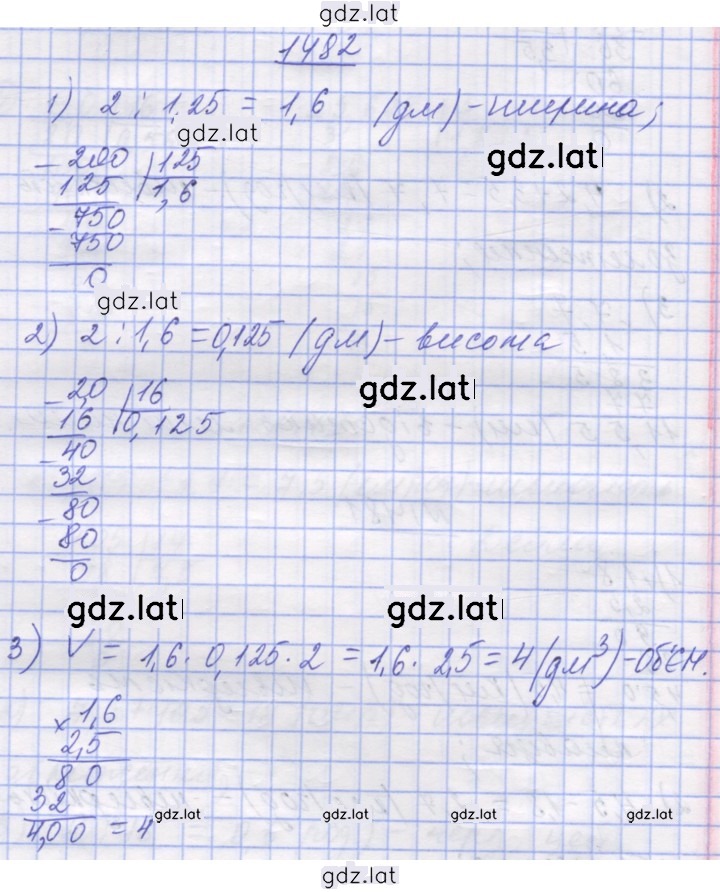 gdz.lat
1482
1) 2 : 1,25 = 1,6 (дм) - ширина;
gdz.lat
gdz.lat
- 200 | 125
125 | 1,6
- 750
750
0
gdz.lat
2) 2 : 1,6 = 0,125 (дм) - висота
gdz.lat
- 2,0 | 16
16 | 0,125
- 40
32
- 80
80
0
gdz.lat
gdz.lat
3) V = 1,6 · 0,125 · 2 = 1,6 · 2,5 = 4 (дм³) - обєм.
× 1,6
2,5
80
32
4,00 = 4
gdz.lat gdz.lat gdz.lat gdz.lat
gdz.lat